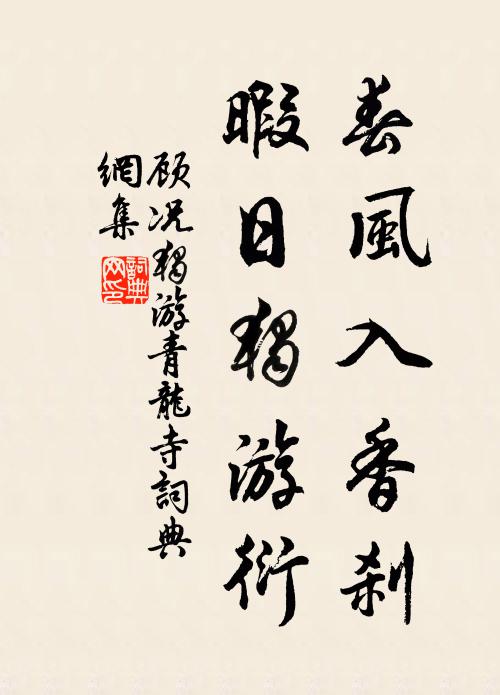 春風入香刹
暇日獨游衍
顾况獨游青龍寺詞典
網集
詞典
网印